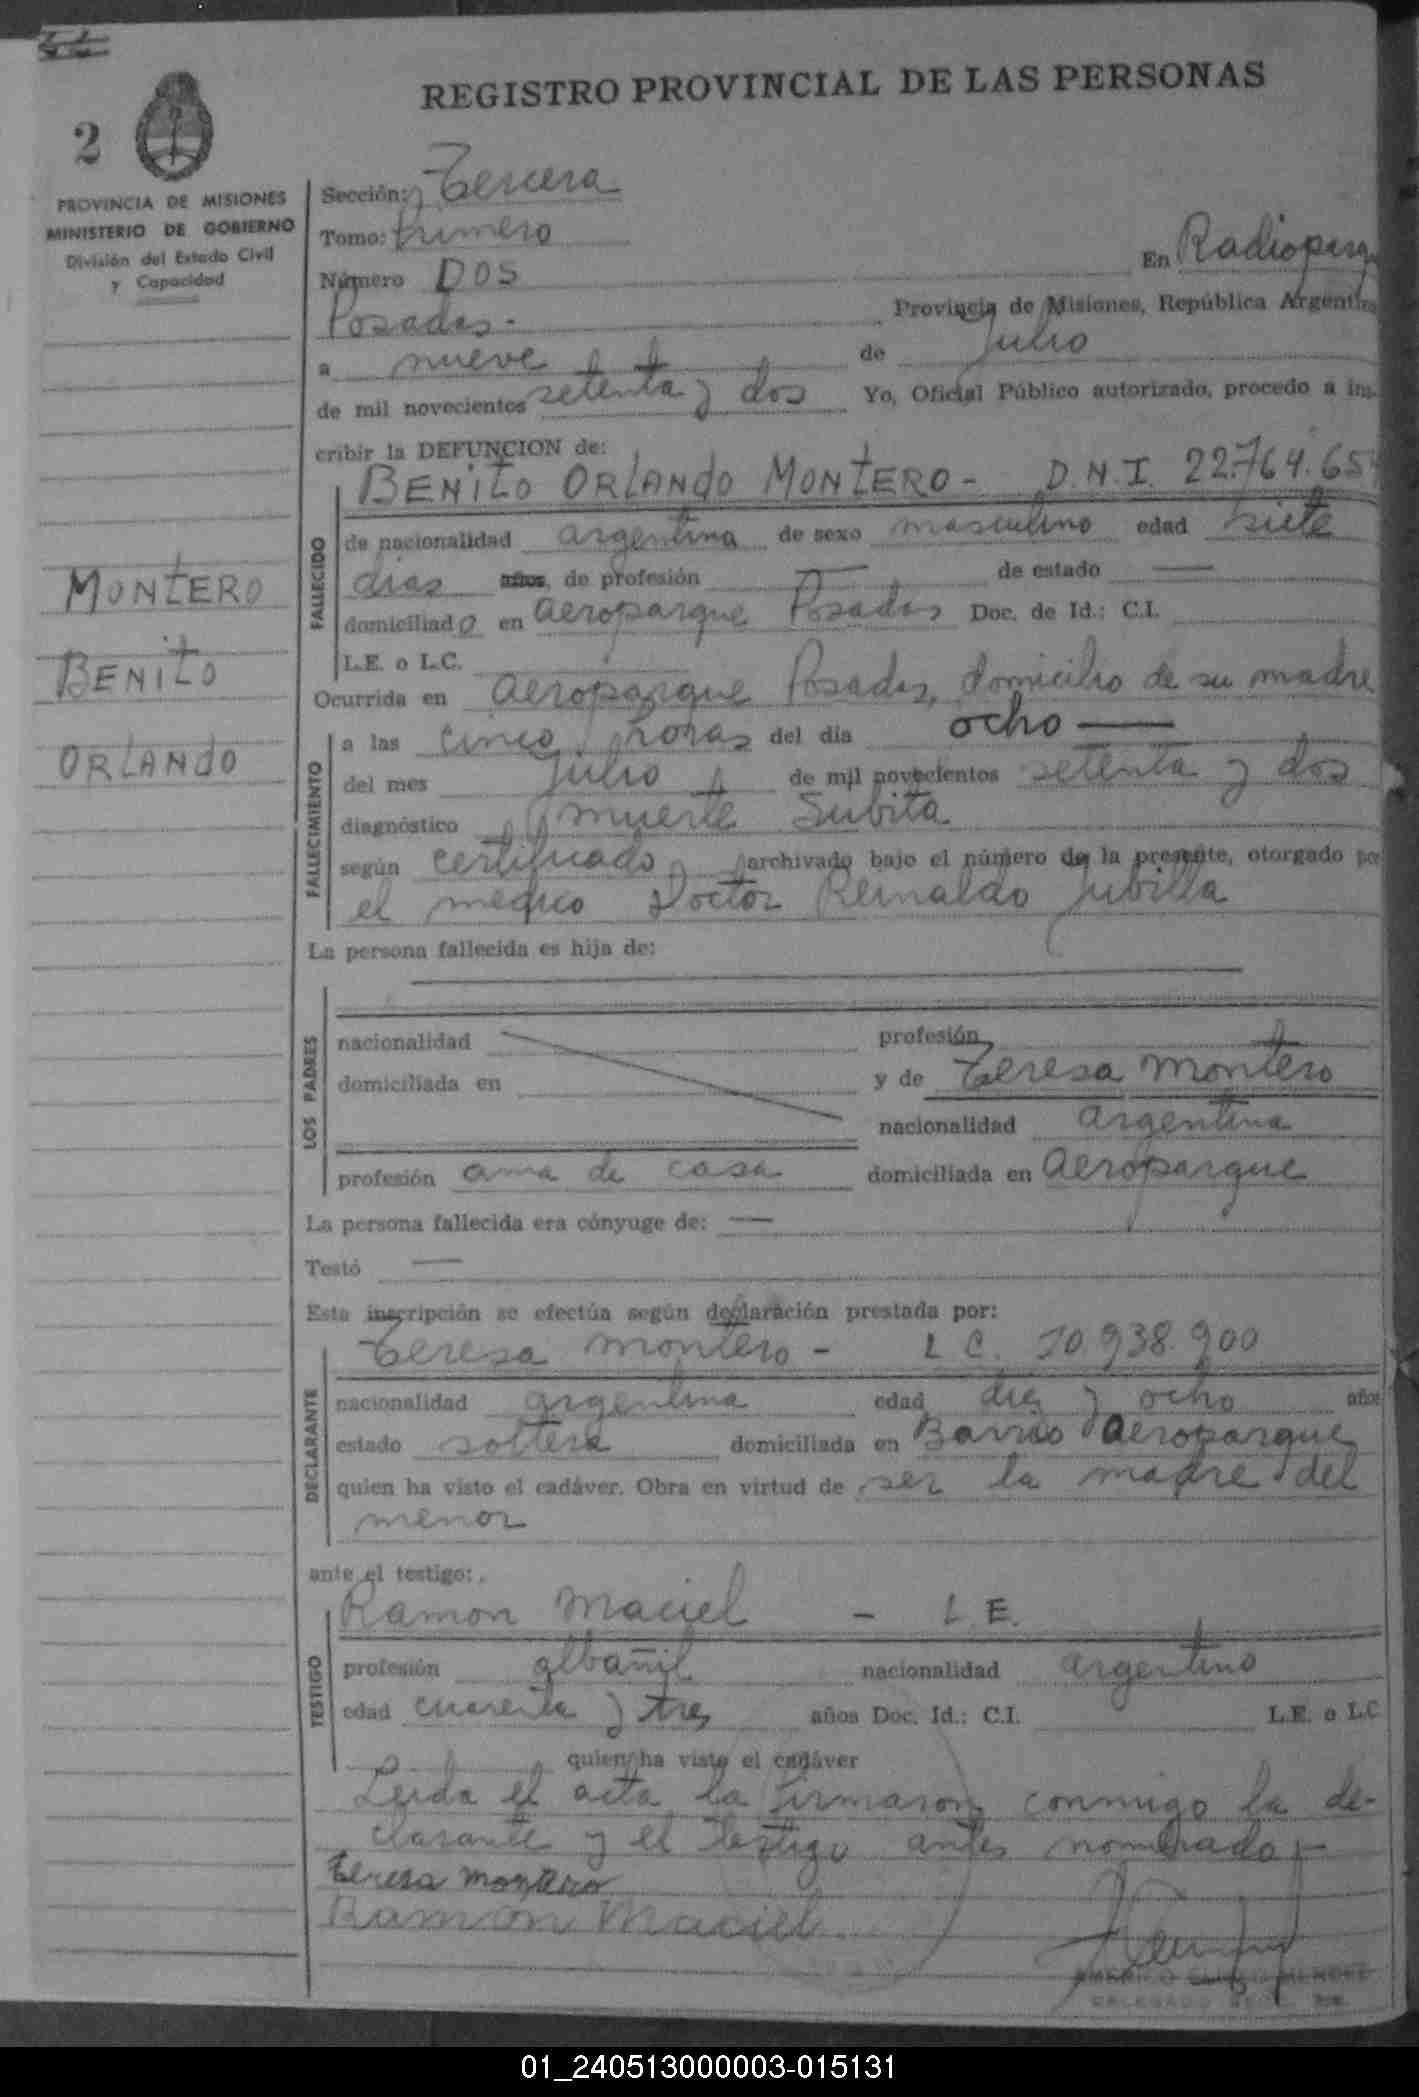 REGISTRO PROVINCIAL DE LAS PERSONAS
2
PROVINCIA DE MISIONES
MINISTERIO DE GOBIERNO
División del Estado Civil
y Capacidad
MONTERO
BENITO
ORLANDO
Sección: Tercera
Tomo: Primero
En Radioparq
Número DOS
Posadas.- Provincia de Misiones, República Argentina
a nueve de Julio
de mil novecientos setenta y dos Yo, Oficial Público autorizado, procedo a ins-
cribir la DEFUNCION de:
BENITO ORLANDO MONTERO - D.N.I. 22.764.654
FALLECIDO
de nacionalidad argentina de sexo masculino edad siete
dias años, de profesión — de estado —
domiciliado en aeroparque Posadas Doc. de Id.: C.I.
L.E. o L.C.
Ocurrida en aeroparque Posadas, domicilio de su madre
FALLECIMIENTO
a las cinco horas del día ocho —
del mes Julio de mil novecientos setenta y dos
diagnóstico muerte Subita
según certificado archivado bajo el número de la presente, otorgado por
el medico Doctor Reinaldo Jubilla
La persona fallecida es hija de:
LOS PADRES
nacionalidad profesión
domiciliada en y de Teresa Montero
nacionalidad argentina
profesión ama de casa domiciliada en aeroparque
La persona fallecida era cónyuge de: —
Testó —
Esta inscripción se efectúa según declaración prestada por:
Teresa Montero - L C. 10.938.900
DECLARANTE
nacionalidad argentina edad diez y ocho años
estado soltera domiciliada en Barrio Aeroparque
quien ha visto el cadáver. Obra en virtud de ser la madre del
menor
ante el testigo:
Ramon Maciel - L.E.
TESTIGO
profesión albañil nacionalidad argentino
edad cuarenta y tres años Doc. Id.: C.I. L.E. o L.C
quien ha visto el cadáver
Leida el acta la firmaron conmigo la de-
clarante y el testigo antes nombrado -
Teresa Montero
Ramon Maciel
01_240513000003-015131